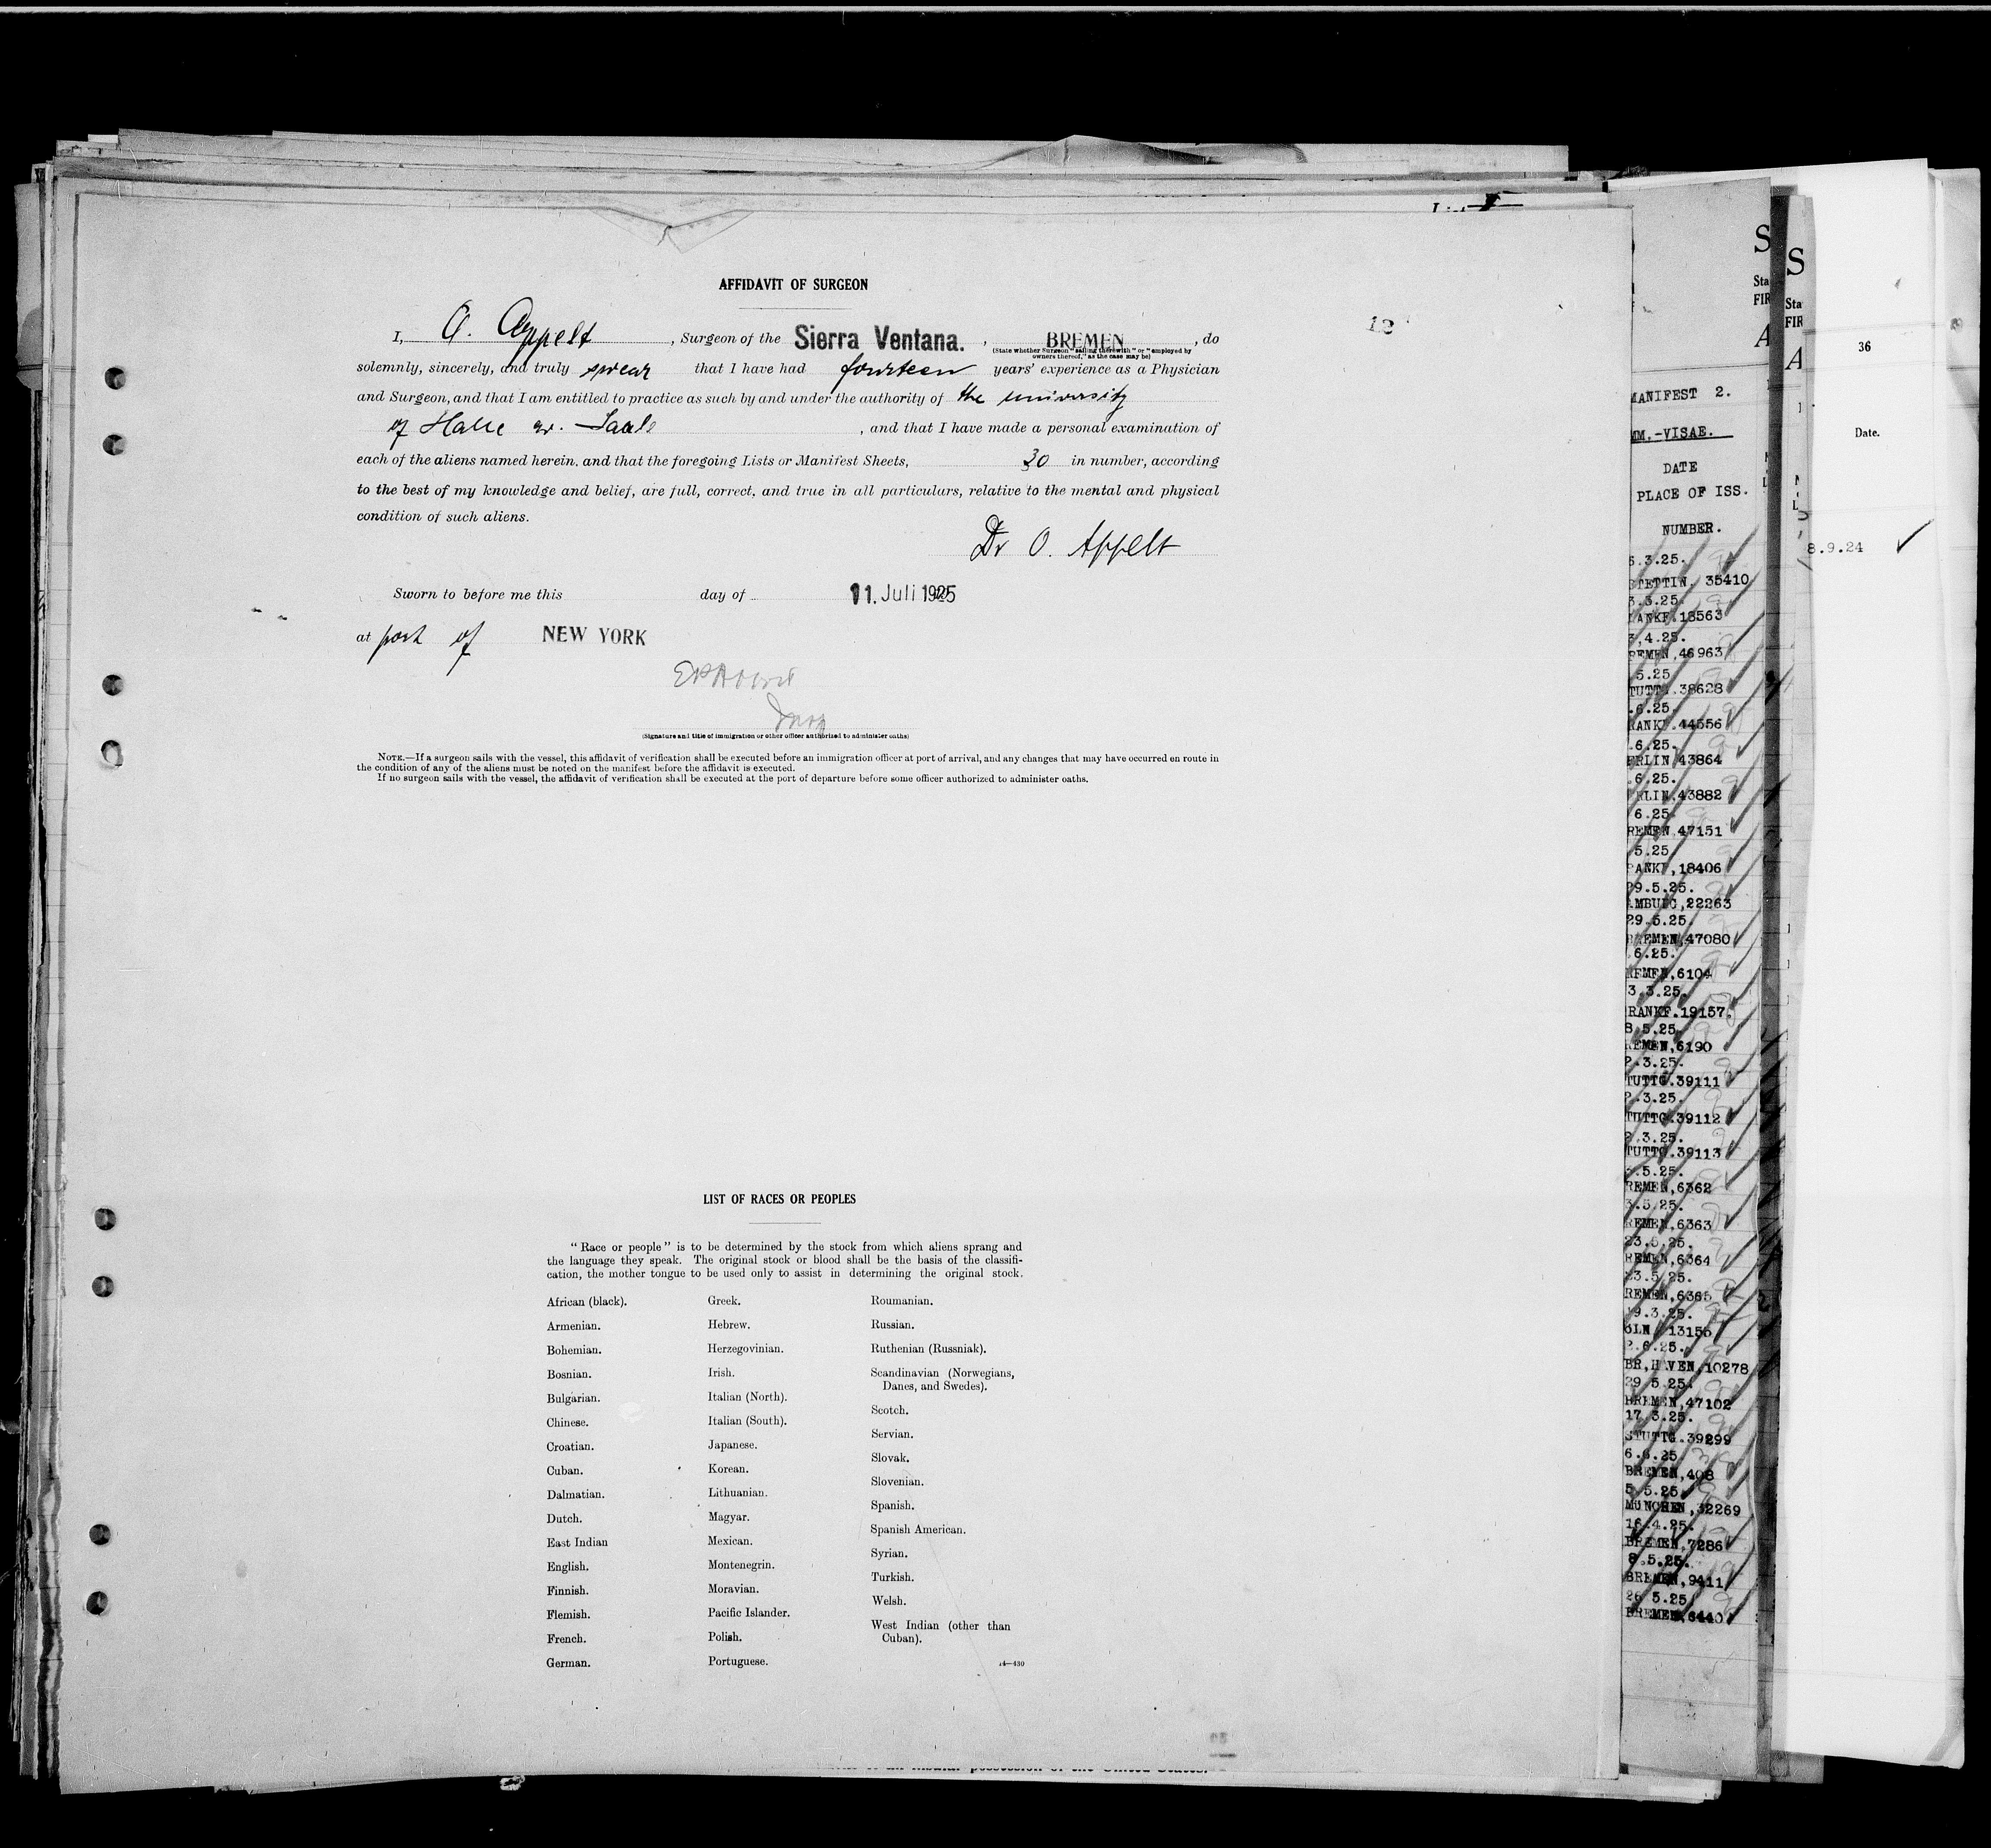 AFFIDAVIT OF SURGEON
12
I, O. Appelt, Surgeon of the Sierra Ventana. , BREMEN , do
(State whether Surgeon "sailing therewith" or "employed by
owners thereof," as the case may be)
solemnly, sincerely, and truly swear that I have had fourteen years' experience as a Physician
and Surgeon, and that I am entitled to practice as such by and under the authority of the university
of Halle a. Saale , and that I have made a personal examination of
each of the aliens named herein, and that the foregoing Lists or Manifest Sheets, 30 in number, according
to the best of my knowledge and belief, are full, correct, and true in all particulars, relative to the mental and physical
condition of such aliens.
Dr O. Appelt
Sworn to before me this day of 11. Juli 1925
at port of NEW YORK
(Signature and title of immigration or other officer authorized to administer oaths)
NOTE.—If a surgeon sails with the vessel, this affidavit of verification shall be executed before an immigration officer at port of arrival, and any changes that may have occurred en route in
the condition of any of the aliens must be noted on the manifest before the affidavit is executed.
If no surgeon sails with the vessel, the affidavit of verification shall be executed at the port of departure before some officer authorized to administer oaths.
LIST OF RACES OR PEOPLES
"Race or people" is to be determined by the stock from which aliens sprang and
the language they speak. The original stock or blood shall be the basis of the classifi-
cation, the mother tongue to be used only to assist in determining the original stock.
African (black).
Armenian.
Bohemian.
Bosnian.
Bulgarian.
Chinese.
Croatian.
Cuban.
Dalmatian.
Dutch.
East Indian
English.
Finnish.
Flemish.
French.
German.
Greek.
Hebrew.
Herzegovinian.
Irish.
Italian (North).
Italian (South).
Japanese.
Korean.
Lithuanian.
Magyar.
Mexican.
Montenegrin.
Moravian.
Pacific Islander.
Polish.
Portuguese.
Roumanian.
Russian.
Ruthenian (Russniak).
Scandinavian (Norwegians,
Danes, and Swedes).
Scotch.
Servian.
Slovak.
Slovenian.
Spanish.
Spanish American.
Syrian.
Turkish.
Welsh.
West Indian (other than
Cuban).
14—430
MANIFEST 2.
MM.-VISAE.
DATE
PLACE OF ISS.
NUMBER.
5.3.25.
STETTIN. 35410
3.3.25.
ANKF.18563
3,4.25.
REMEN,46963
5.25
TUTTG.38628
.6.25.
RANKF.44556
.6.25.
ERLIN,43864
.6.25.
RLIN,43882
6.25.
REMEN,47151
5.25
RANKF,18406
29.5.25.
AMBURG,22263
29.5.25.
BREMEN,47080
.6.25.
REMEN,6104
3.3.25.
RANKF.19157.
8.5.25.
REMEN,6190
2.3.25.
TUTTG.39111
2.3.25.
TUTTG.39112
2.3.25.
TUTTG.39113
.5.25.
REMEN,6362
3.5.25.
REMEN,6363
23.5.25.
REMEN,6364
23.5.25.
REMEN,6365
19.3.25.
ÖLN 13155
2.6.25.
BR,HAVEN,10278
29.5.25.
BREMEN,47102
17.3.25.
STUTTG.39299
6.6.25
BREMEN,408
5.5.25
MÜNCHEN,32269
16.4.25.
BREMEN,7286
8.5.25.
BREMEN,9411
26.5.25
BREMEN,6440
S
Sta
FIR
A
S
Sta
FIR
A
36
Date.
8.9.24